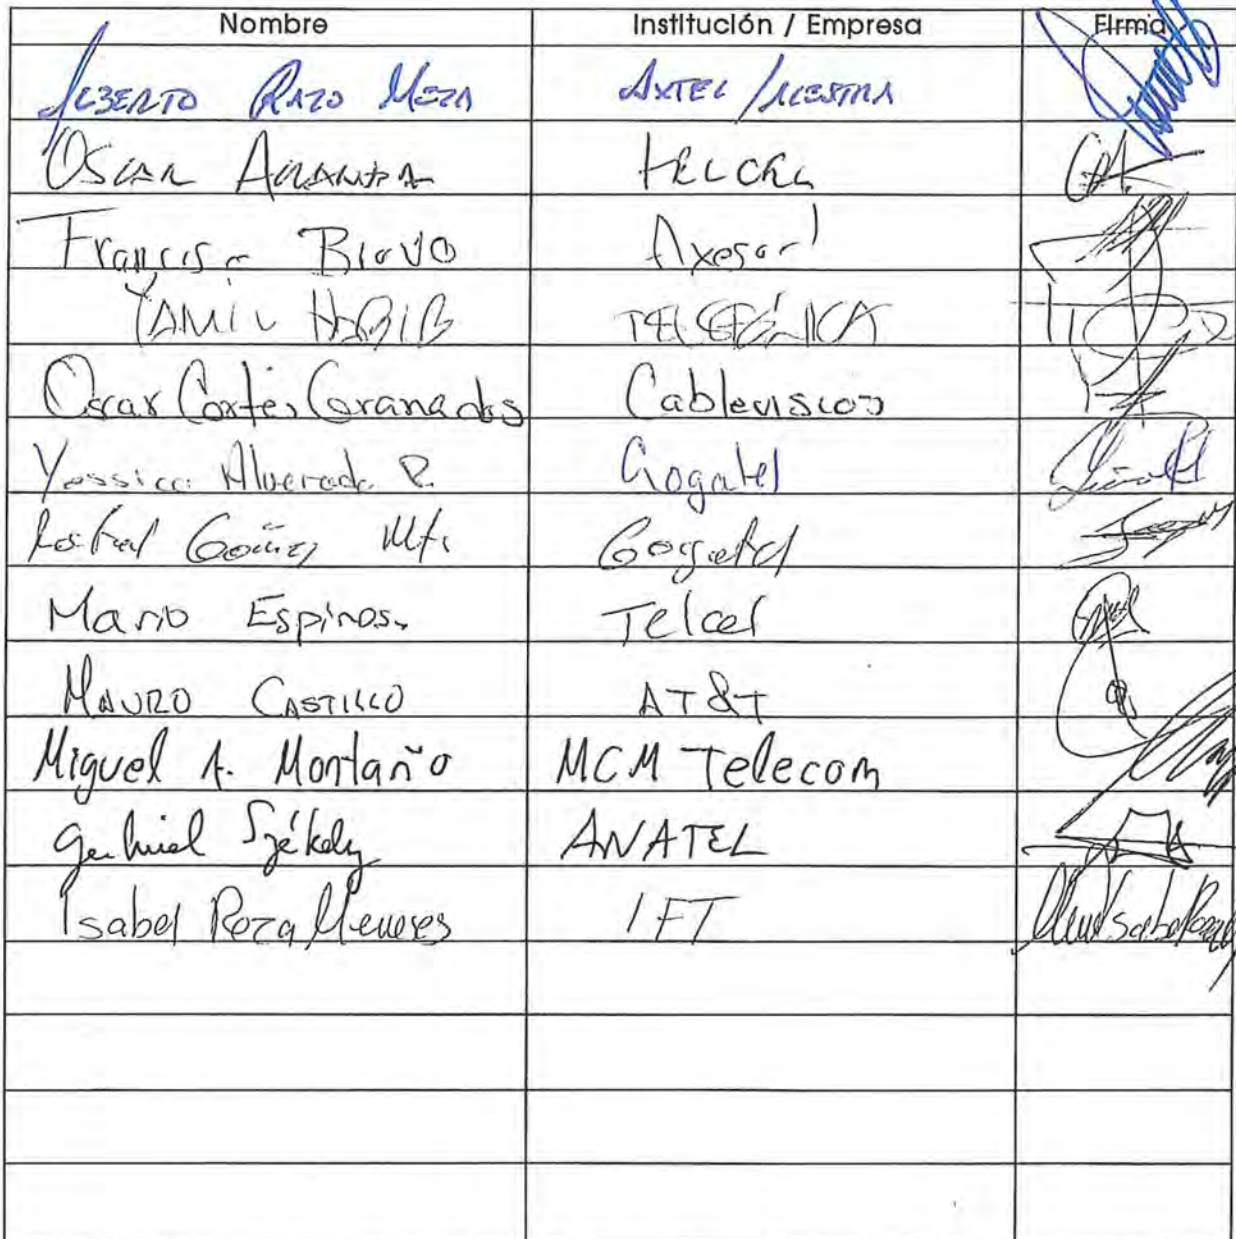 Nombre Institución / Empresa Firma
ALBERTO RAZO MEZA AXTEL / ALESTRA
OSCAR ARANDA TELCEL
Francisco Bravo Axesor
YAMIL HABIB TELEFÓNICA
Oscar Cortés Granados Cablevision
Yessica Alvarado R. Gogatel
Gómez Gogatel
Mario Espinosa Telcel
MAURO CASTILLO AT&T
Miguel A. Montaño MCM Telecom
Gabriel Székely ANATEL
Isabel Poza Meneses IFT